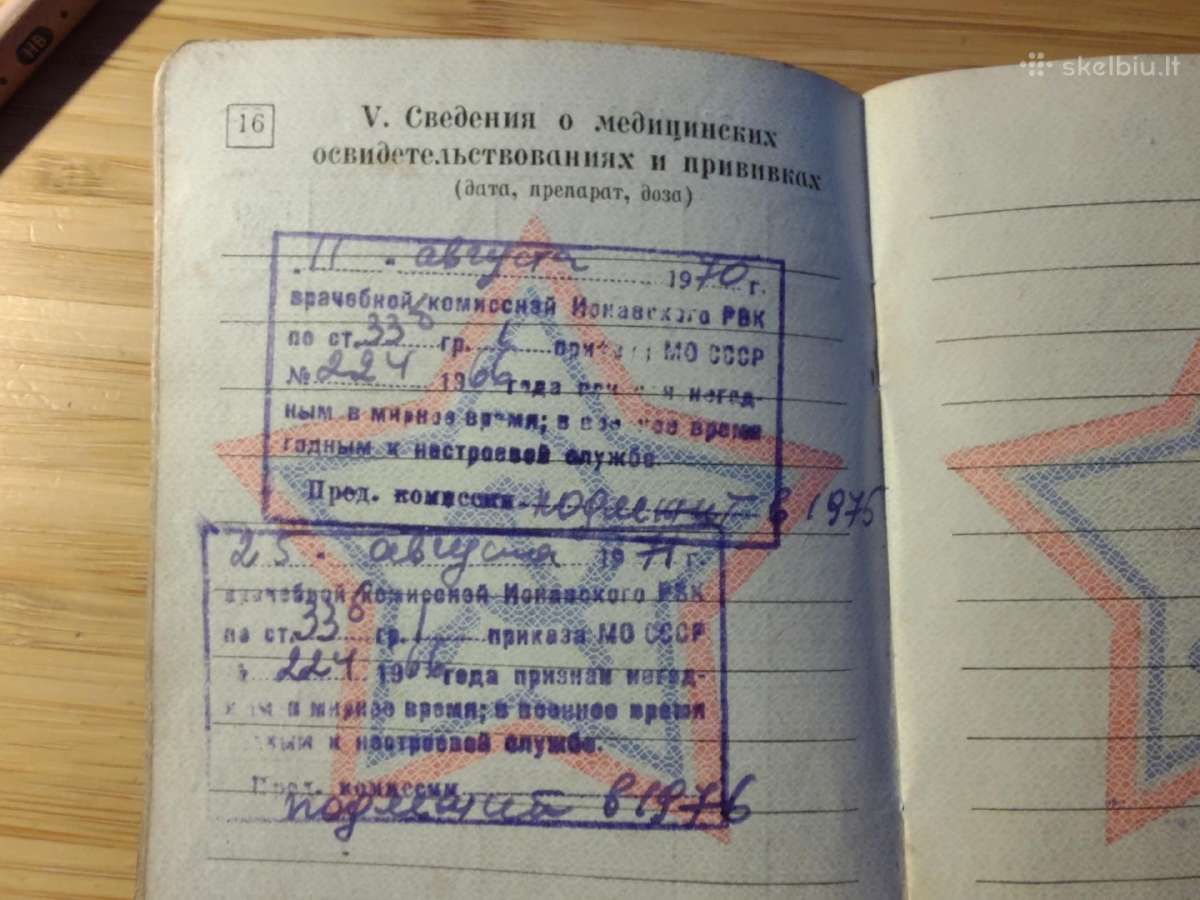 НВ
skelbiu.lt
16
V. Сведения о медицинских
освидетельствованиях и прививках
(дата, препарат, доза)
11 августа 1970 г.
врачебной комиссией Ионавского РВК
по ст. 33б гр. 1 приказа МО СССР
№ 224 1966 года признан негод-
ным в мирное время; в военное время
годным к нестроевой службе.
Пред. комиссии подлежит в 1975
25 августа 1971 г.
врачебной комиссией Ионавского РВК
по ст. 33б гр. 1 приказа МО СССР
224 1966 года признан негод-
ным в мирное время; в военное время
годным к нестроевой службе.
Пред. комиссии
подлежит в 1976